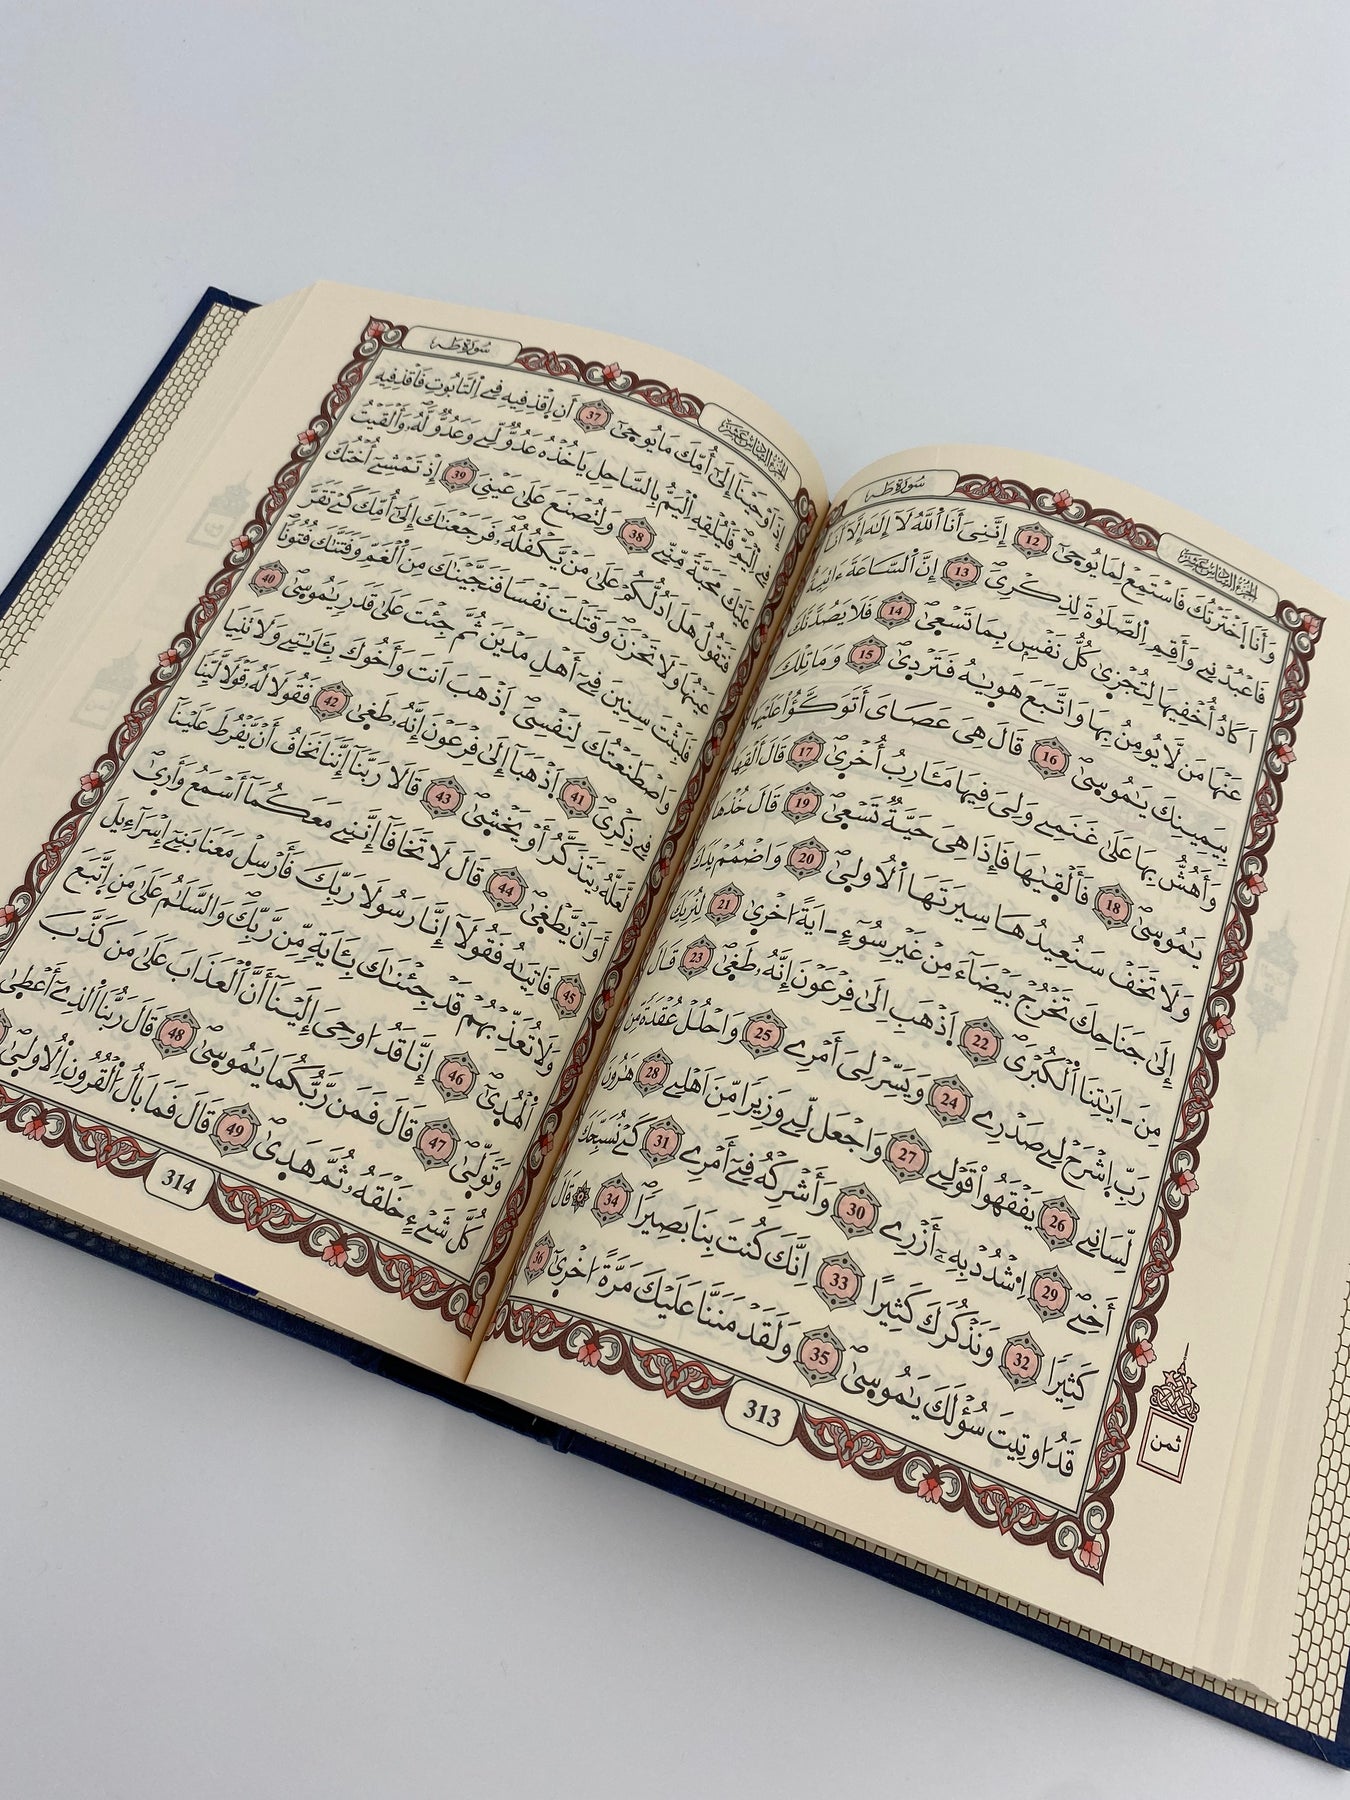 سُورَة طَه
الجزء السادس عشر
وَأَنَا اَخْتَرْتُكَ فَاسْتَمِعْ لِمَا يُوحَىٰ 12 إِنَّنِي أَنَا اَللَّهُ لَا إِلَٰهَ إِلَّا أَنَا
فَاعْبُدْنِي وَأَقِمِ اِلصَّلَوٰةَ لِذِكْرِي 13 إِنَّ اَلسَّاعَةَ ءَاتِيَةٌ
اَكَادُ أُخْفِيهَا لِتُجْزَىٰ كُلُّ نَفْسٍ بِمَا تَسْعَىٰ 14 فَلَا يَصُدَّنَّكَ
عَنْهَا مَن لَّا يُومِنُ بِهَا وَاتَّبَعَ هَوَىٰهُ فَتَرْدَىٰ 15 وَمَا تِلْكَ
بِيَمِينِكَ يَٰمُوسَىٰ 16 قَالَ هِيَ عَصَايَ أَتَوَكَّؤُا عَلَيْهَا
وَأَهُشُّ بِهَا عَلَىٰ غَنَمِي وَلِيَ فِيهَا مَـَٔارِبُ أُخْرَىٰ 17 قَالَ أَلْقِهَا
يَٰمُوسَىٰ 18 فَأَلْقَىٰهَا فَإِذَا هِيَ حَيَّةٌ تَسْعَىٰ 19 قَالَ خُذْهَا
وَلَا تَخَفْ سَنُعِيدُهَا سِيرَتَهَا اَلُاولَىٰ 20 وَاضْمُمْ يَدَكَ
إِلَىٰ جَنَاحِكَ تَخْرُجْ بَيْضَآءَ مِنْ غَيْرِ سُوٓءٍ اٰيَةً اُخْرَىٰ 21 لِنُرِيَكَ
مِنَ اٰيَٰتِنَا اَلْكُبْرَىٰ 22 اَذْهَبِ اِلَىٰ فِرْعَوْنَ إِنَّهُۥ طَغَىٰ 23 قَالَ
رَبِّ اِشْرَحْ لِي صَدْرِي 24 وَيَسِّرْ لِي أَمْرِي 25 وَاحْلُلْ عُقْدَةً مِّن
لِّسَانِي 26 يَفْقَهُوا قَوْلِي 27 وَاجْعَل لِّي وَزِيرًا مِّنَ اَهْلِي 28 هَٰرُونَ
أَخِي 29 اِشْدُدْ بِهِۦٓ أَزْرِي 30 وَأَشْرِكْهُ فِيٓ أَمْرِي 31 كَيْ نُسَبِّحَكَ
كَثِيرًا 32 وَنَذْكُرَكَ كَثِيرًا 33 اِنَّكَ كُنتَ بِنَا بَصِيرًا 34 ۞ قَالَ
قَدُ اوتِيتَ سُؤْلَكَ يَٰمُوسَىٰ 35 وَلَقَدْ مَنَنَّا عَلَيْكَ مَرَّةً اُخْرَىٰٓ 36
ثمن
313
سُورَة طَه
الجزء السادس عشر
إِذَ اَوْحَيْنَا إِلَىٰٓ أُمِّكَ مَا يُوحَىٰٓ 37 أَنِ اِقْذِفِيهِ فِي اِلتَّابُوتِ فَاقْذِفِيهِ
فِي اِلْيَمِّ فَلْيُلْقِهِ اِلْيَمُّ بِالسَّاحِلِ يَاخُذْهُ عَدُوٌّ لِّي وَعَدُوٌّ لَّهُۥ وَأَلْقَيْتُ
عَلَيْكَ مَحَبَّةً مِّنِّي 38 وَلِتُصْنَعَ عَلَىٰ عَيْنِيَ 39 إِذْ تَمْشِيٓ أُخْتُكَ
فَتَقُولُ هَلَ اَدُلُّكُمْ عَلَىٰ مَنْ يَّكْفُلُهُۥ فَرَجَعْنَٰكَ إِلَىٰٓ أُمِّكَ كَيْ تَقَرَّ
عَيْنُهَا وَلَا تَحْزَنَ وَقَتَلْتَ نَفْسًا فَنَجَّيْنَٰكَ مِنَ اَلْغَمِّ وَفَتَنَّٰكَ فُتُونًا
فَلَبِثْتَ سِنِينَ فِيٓ أَهْلِ مَدْيَنَ ثُمَّ جِئْتَ عَلَىٰ قَدَرٍ يَٰمُوسَىٰ 40
وَاصْطَنَعْتُكَ لِنَفْسِيَ اَذْهَبَ اَنتَ وَأَخُوكَ بِـَٔايَٰتِي وَلَا تَنِيَا
فِي ذِكْرِيَ 41 اَذْهَبَآ إِلَىٰ فِرْعَوْنَ إِنَّهُۥ طَغَىٰ 42 فَقُولَا لَهُۥ قَوْلًا لَّيِّنًا
لَّعَلَّهُۥ يَتَذَكَّرُ أَوْ يَخْشَىٰ 43 قَالَا رَبَّنَآ إِنَّنَا نَخَافُ أَنْ يَّفْرُطَ عَلَيْنَآ
أَوَ اَنْ يَّطْغَىٰ 44 قَالَ لَا تَخَافَآ إِنَّنِي مَعَكُمَآ أَسْمَعُ وَأَرَىٰ
45 فَاتِيَٰهُ فَقُولَآ إِنَّا رَسُولَا رَبِّكَ فَأَرْسِلْ مَعَنَا بَنِيٓ إِسْرَآءِيلَ
وَلَا تُعَذِّبْهُمْ قَدْ جِئْنَٰكَ بِـَٔايَةٍ مِّن رَّبِّكَ وَالسَّلَٰمُ عَلَىٰ مَنِ اِتَّبَعَ
اَلْهُدَىٰٓ 46 إِنَّا قَدُ اوحِيَ إِلَيْنَآ أَنَّ اَلْعَذَابَ عَلَىٰ مَن كَذَّبَ
وَتَوَلَّىٰ 47 قَالَ فَمَن رَّبُّكُمَا يَٰمُوسَىٰ 48 قَالَ رَبُّنَا اَلذِيٓ أَعْطَىٰ
كُلَّ شَيْءٍ خَلْقَهُۥ ثُمَّ هَدَىٰ 49 قَالَ فَمَا بَالُ اُلْقُرُونِ اِلُاولَىٰ
314